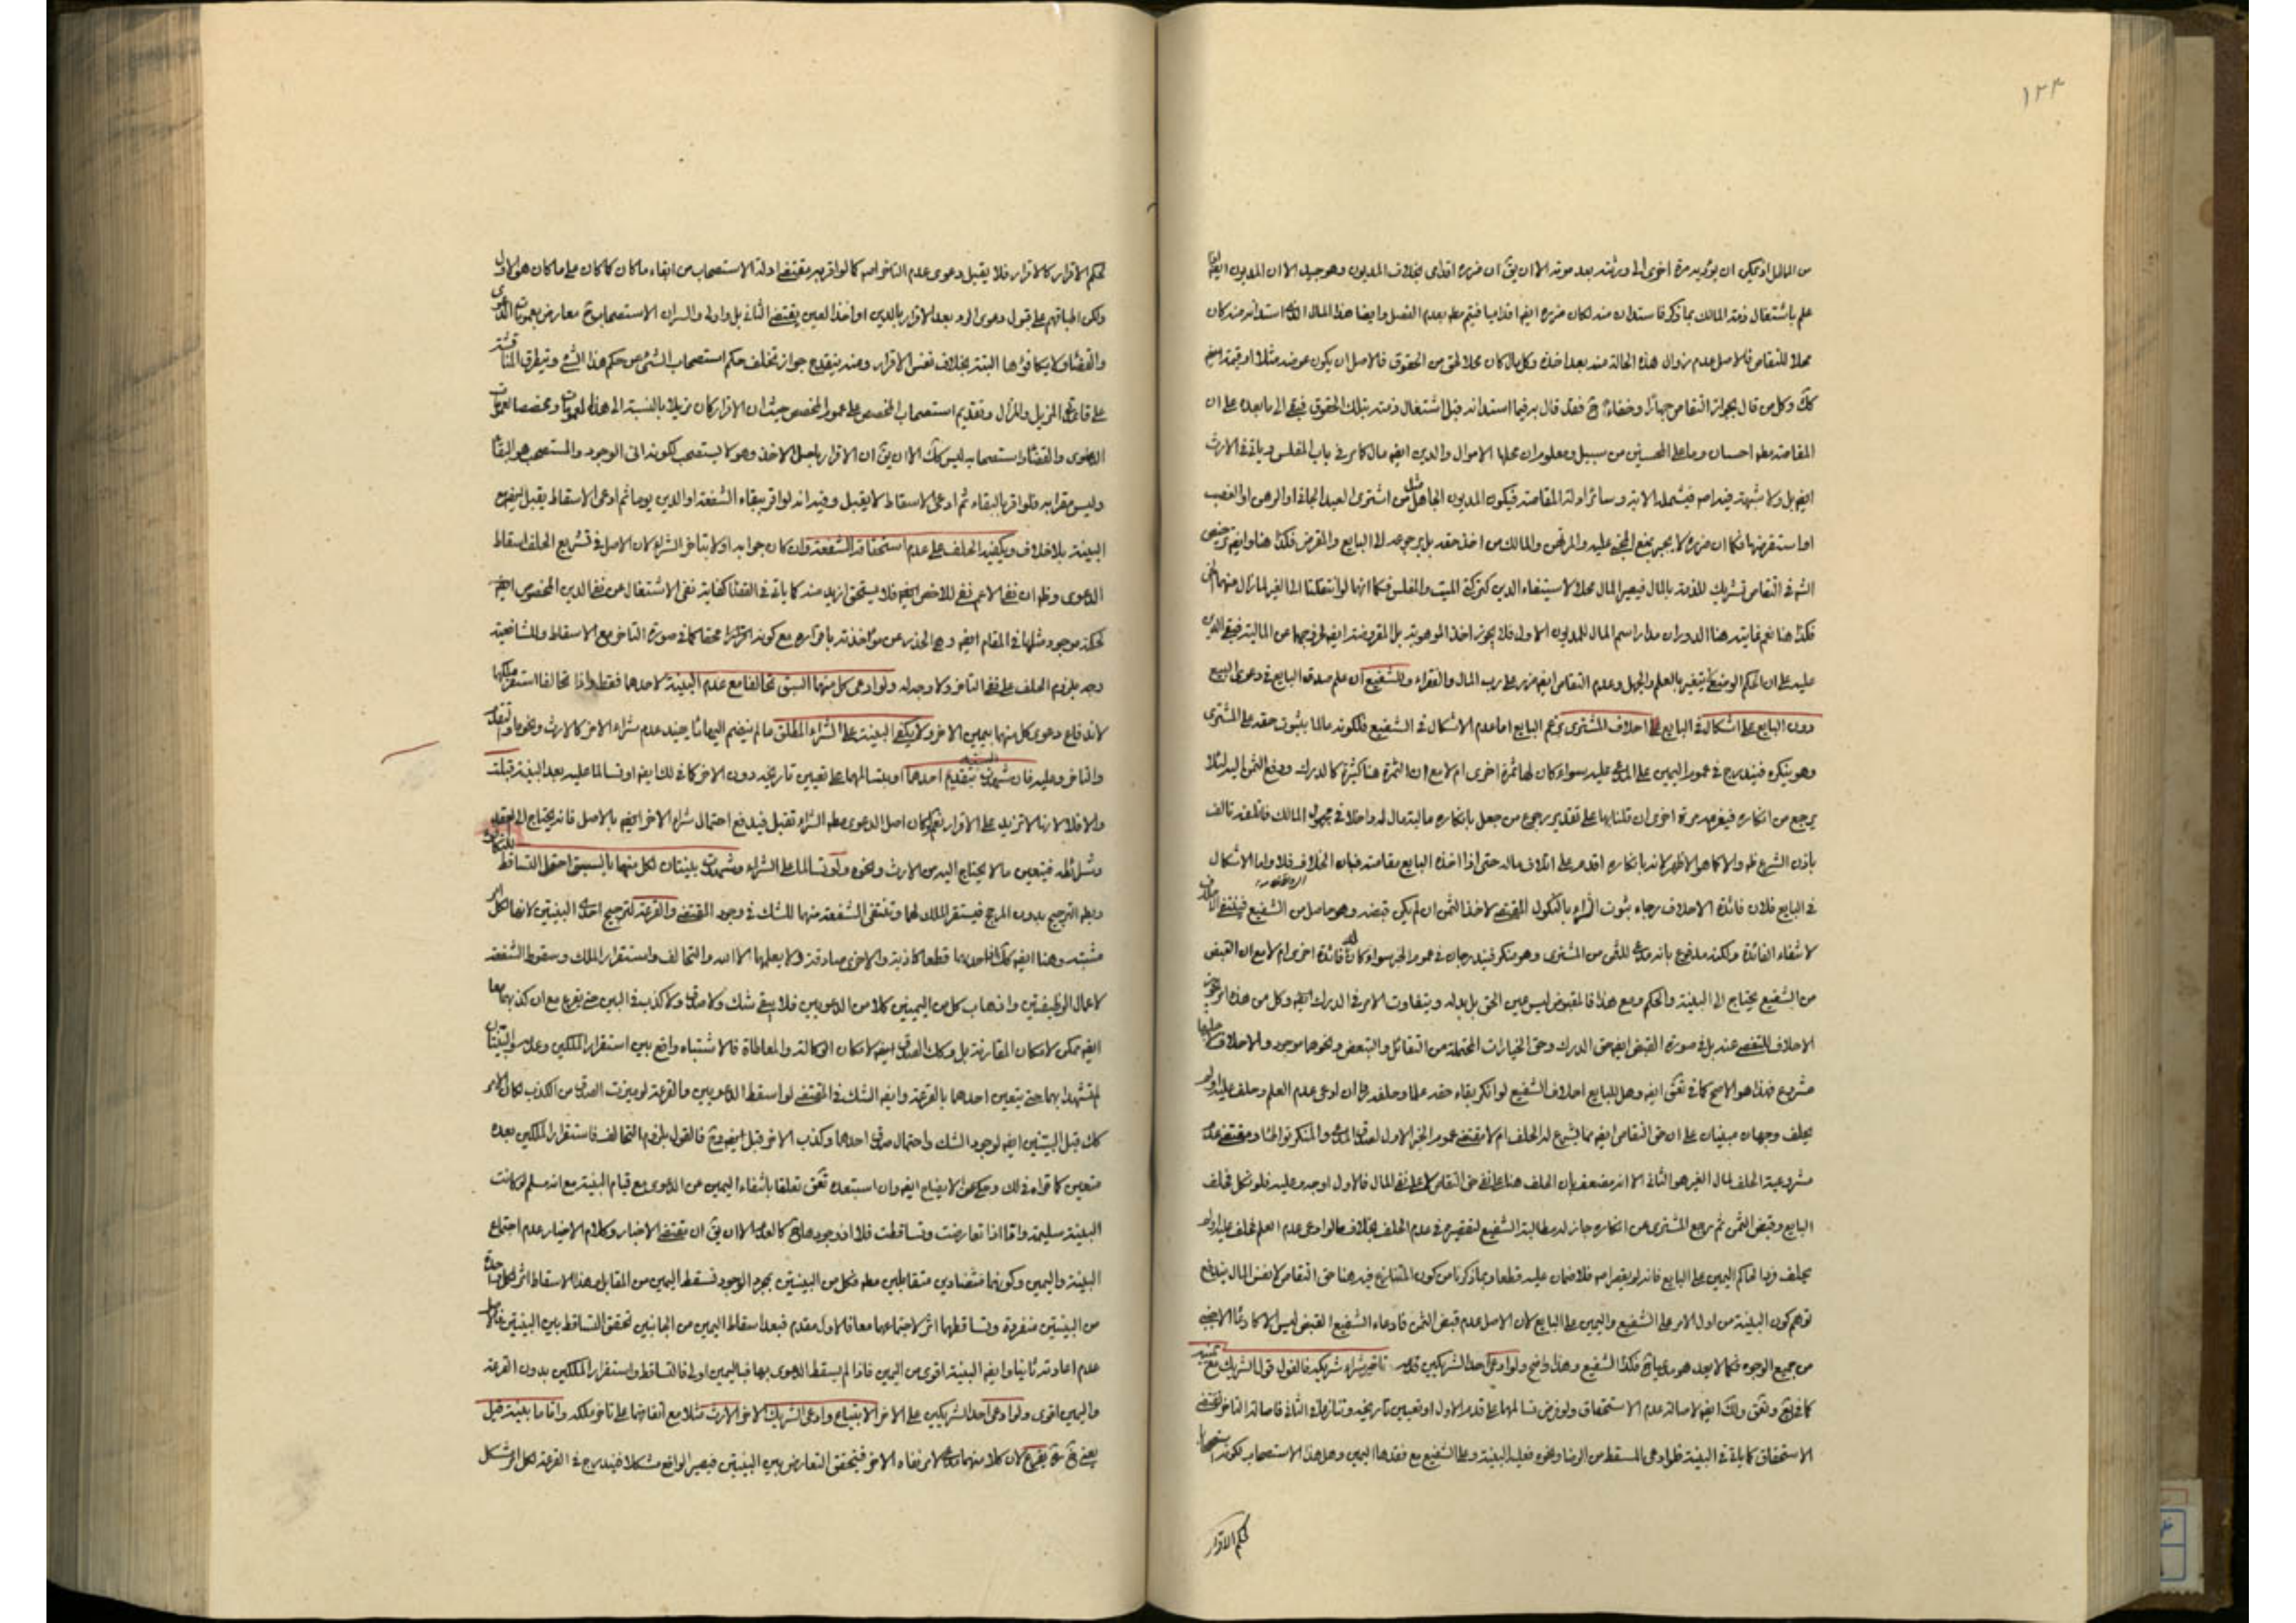 ١٢٣
من المال اذ يمكن ان يؤديه مرة اخرى الى ورثته بعد موته الا ان يق ان ضرره اقدامى بخلاف المديون وهو جيد الا ان المديون ايضا
علم باشتغال ذمته المالك بما ذكر فاستدانه منه لكان ضرره ايضا اقداميا فيتم مطلقا بعدم الفصل وايضا هذا المال الذى استدانه منه كان
محلا للتقاص فالاصل عدم زوال هذه الحالة منه بعد اخذه وكل مال كان محلا لحق من الحقوق فالاصل ان يكون عوضه مثلا او قيمة ايضا
كك وكل من قال بجواز التقاص جهارا وخفاء فقد قال به فيما استدانه قبل اشتغال ذمته بتلك الحقوق فيبقى الى ما بعده على ان
المقاصة مطلقا احسان وما على المحسنين من سبيل ومعلوم ان محلها الاموال والدين ايضا مال كما مر فى باب المفلس وياتى فى الارث
ايضا بل ولا شبهة فيه اصلا فيشمله الاية وسائر ادلة المقاصة فيكون المديون الجاهل مثل من اشترى العبد الجانى او الرهن او الغصب
او استقرضها فكما ان ضرره لا يجبر بمنع المجنى عليه والمرتهن والمالك من اخذ حقه بل يرجع به الى البايع والمقرض فكذا هنا وايضا ترخيص
الشرع فى التقاص تشريك للذمة بالمال فيصير المال محلا لاستيفاء الدين كتركة الميت والمفلس فكما انها لو انتقلتا الى الغير لما زال منهما الحق
فكذا هنا نعم غايته هنا الدوران مدار اسم المال للمديون الاول فلا يجوز اخذ الموهوبة بل المقروضة ايضا لخروجهما عن المالية فيبقى الدين
عليه على ان الحكم الوضعى لا يتغير بالعلم والجهل وعدم التقاص ايضا ضرر على رب المال والفقراء وللشفيع ان علم صدق البايع فى دعوى البيع
دون البايع على اشكال فى البايع احلاف المشترى بزعم البايع اما عدم الاشكال فى الشفيع فلكونه مالما بثبوت حقه على المشترى
وهو ينكره فيندرج فى عموم اليمين على المدعى عليه سواء كان لها ثمرة اخرى ام لا مع ان الثمرة هنا كثيرة كالدرك ودفع الثمن اليه لئلا
يرجع من انكاره فيغرمه مرة اخرى ان قلنا بها على تقدير رجوع من جعل بانكاره ماليته مال له داخلا فى مجهول المالك فانعقد تالف
باذن الشرع مطلقا والا كما هو الاظهر لانه بانكاره اقدم على اتلاف ماله حتى اذا اخذه البايع مقاصة فبان الخلاف فلا واما الاشكال
فى البايع فلان فائدة الاحلاف رجاء ثبوت الشراء بالنكول المقتضى لاخذ الثمن ان لم يكن قبضه وهو حاصل من الشفيع فينتفى الاحلاف
لانتفاء الفائدة ولكنه مدفوع بانه مدع للثمن من المشترى وهو منكر فيندرجان فى عموم الخبر سواء كان له فائدة اخرى ام لا مع ان القبض
من الشفيع يحتاج الى البينة والحكم ومع هذا فالمقبوض ليس عين الحق بل بدله ويتفاوت الامر فى الدرك ايضا وكل من هذه امر مرغوب
الاحلاف للتفصى عنه بل فى صورة القبض ايضا حق الدرك وحق الخيارات المحتملة من التقايل والتبعض ونحوها موجود والاحلاف عليها
مشروع فهذا هو الاصح كما فى تحق ايضا وهل للبايع احلاف الشفيع لو انكر بقاء حقه علما وحلفه ان ادعى عدم العلم وحلف عليه اولم
يحلف وجهان مبنيان على ان حق التقاص ايضا مما يشرع له الحلف ام لا مقتضى عموم الخبر الاول لصدق المدعى والمنكر ومقتضى عدم
مشروعية الحلف لمال الغير هو الثانى الا انه مضعف بان الحلف هنا على نفى حق التقاص لا على نفى المال فالاول اوجه وعليه فلو نكل فحلف
البايع وقبض الثمن ثم رجع المشترى عن انكاره جاز له مطالبة الشفيع لتقصيره فى عدم الحلف بخلاف ما لو ادعى عدم العلم فحلف عليه اولم
يحلف ورد الحاكم اليمين على البايع فانه لو يقصر اصلا فلا ضمان عليه قطعا وبما ذكرنا من كون المتنازع فيه هنا حق التقاص لا نفس المال يندفع
توهم كون البينة من اول الامر على الشفيع واليمين على البايع لان الاصل عدم قبض الثمن فادعاء الشفيع القبض ليس الا كادعاء الاجنبى
من جميع الوجوه فكما لا يعد هو مدعيا فكذا الشفيع وهذا واضح ولو ادعى احد الشريكين قدمه تاخير شراء شريكه فالقول قول الشريك مع يمينه
كما فى وتحق ولك ايضا لاصالة عدم الاستحقاق ولو فرض تسالمهما على قدم الاول او تعيين تاريخه وتنازعا فى الثانى فاصالة التاخر تقتضى
الاستحقاق كما ياتى فى البينة فلو ادعى المسقط من الرضا ونحوه فعليه البينة وعلى الشفيع مع فقدها اليمين وهل هذا الاستصحاب لكونه استصحابا
لحكم الاقرار
لحكم الاقرار كالاقرار فلا يقبل دعوى عدم التاخر اصلا كما لو اقر به مقتضى ادلة الاستصحاب من ابقاء ما كان كما كان على ما كان هو الاول
ولكن اطباقهم على قبول دعوى الرد بعد الاقرار بالدين او اخذ العين يقتضى الثانى بل واولى والسر ان الاستصحاب معارض بعمومات الدعوى
والقضاء ولا يكافؤها البتة بخلاف نفس الاقرار ومنه ينقدح جواز تخلف حكم استصحاب الشىء عن حكم هذا الشىء ويتطرق المناقشة
على قاعدتى المزيل والمزال وتقديم استصحاب المخصص على عموم المخصص حيث ان الاقرار كان مزيلا بالنسبة الى هذه العمومات ومخصصا لعمومات
الدعوى والقضاء واستصحابه ليس كك الا ان يق ان الاقرار باصل الاخذ وهو لا يستصحب لكونه انى الوجود والمستصحب هو البقاء
وليس مقرا به فلو اقر بالبقاء ثم ادعى الاسقاط لا يقبل وفيه انه لو اقر ببقاء الشفعة او الدين يوما ثم ادعى الاسقاط يقبل ايضا مع
البينة بلا خلاف ويكفيه الحلف على عدم استحقاق الشفعة وان كان جوابه اولا بتاخر الشراء لان الاصل فى تشريع الحلف اسقاط
الدعوى وظاهر ان نفى الاعم نفى للاخص ايضا فلا يستحق ازيد منه كما ياتى فى القضاء كفاية نفى الاشتغال عن نفى الدين المخصوص ايضا
لحكمة موجود مثلها فى المقام ايضا وهى الحذر عن مؤاخذته باقراره مع كونه محقا كما فى صورة التاخر مع الاسقاط وللشافعية
وجه بلزوم الحلف على نفى التاخر ولا وجه له ولو ادعى كل منهما السبق تحالفا مع عدم البينة لاحدهما فقط واذا تحالفا استقر ملكهما
لاندفاع دعوى كل منهما بيمين الاخر ولا يكفى البينة على الشراء المطلق ما لم ينضم اليها ما يفيد عدم شراء الاخر كالارث ونحوه او التقدم
والتاخر وعليه فان شهدت البينة بتقديم احدهما او بتسالمهما على تعيين تاريخه دون الاخر كما فى لك ايضا او تسالما عليه بعد البينة قبلت
والا فلا لانها لا تزيد على الاقرار نعم لو كان اصل الدعوى مطلق الشراء تقبل فيدفع احتمال شراء الاخر ايضا بالاصل فانه يحتاج الى العقد
وشرائطه فيتعين ما لا يحتاج اليه من الارث ونحوه ولو تسالما على الشراء وشهدت بينتان لكل منهما بالسبق احتمل التساقط للتكافؤ
وبطلان الترجيح بدون المرجح فيستقر الملك لهما وتنتفى الشفعة منهما للشك فى وجود المقتضى والقرعة لترجيح احدى البينتين لانها لكل امر
مشتبه وهنا ايضا كك لان احديهما قطعا كاذبة والاخرى صادقة ولا يعلمها الا الله والتحالف واستقرار الملك وسقوط الشفعة
لاعمال الوظيفتين واذهاب كل من اليمينين كلا من الدعويين فلا يبقى شك ولا صدق ولا كذب فى البين حتى يقرع مع ان كذبهما معا
ايضا ممكن لامكان المقارنة بل وكك الصدق ايضا لامكان الوكالة والمعاطاة فالاشتباه واقع بين استقرار الملكين وعدمه والبينتان
لم تشهدا بهما حتى يتعين احدهما بالقرعة وايضا الشك فى المقتضى لو اسقط الدعويين والقرعة لو ميزت الصدق من الكذب لكان الامر
كك قبل البينتين ايضا لوجود الشك واحتمال صدق احدهما وكذب الاخر قبل ايضا فالقول بلزوم التحالف فاستقرار الملكين بعده
متعين كما قواه فى لك وحكى عن الايضاح ايضا وان استبعده تحق تعلقا بانتفاء اليمين عن الدعوى مع قيام البينة مع انه مسلم لو كانت
البينة سليمة واما اذا تعارضت وتساقطت فلا اذ وجودها كالعدم الا ان يق ان مقتضى الاخبار وكلام الاخيار عدم اجتماع
البينة واليمين وكونهما متضادين متقابلين مطلقا فكل من البينتين بمجرد الوجود تسقط اليمين من المقابل وهذا الاسقاط اثر لكل واحدة
من البينتين منفردة وتساقطهما اثر لاجتماعهما معا فالاول مقدم فبعد اسقاط اليمين من الجانبين تحقق التساقط بين البينتين فالاصل
عدم اعادته ثانيا وايضا البينة اقوى من اليمين فاذا لم يسقط الدعوى بها فباليمين اولى فالتساقط واستقرار الملكين بدون القرعة
واليمين اقوى ولو ادعى احد الشريكين على الاخر الابتياع وادعى الشريك الاخر الارث مثلا مع اتفاقهما على تاخر ملكه واقاما بينة قيل
يعنى يقرع لان كلا منهما مدع لامر نفاه الاخر فيتحقق التعارض بين البينتين فيصير الواقع مشكلا فيندرج فى القرعة لكل امر مشكل